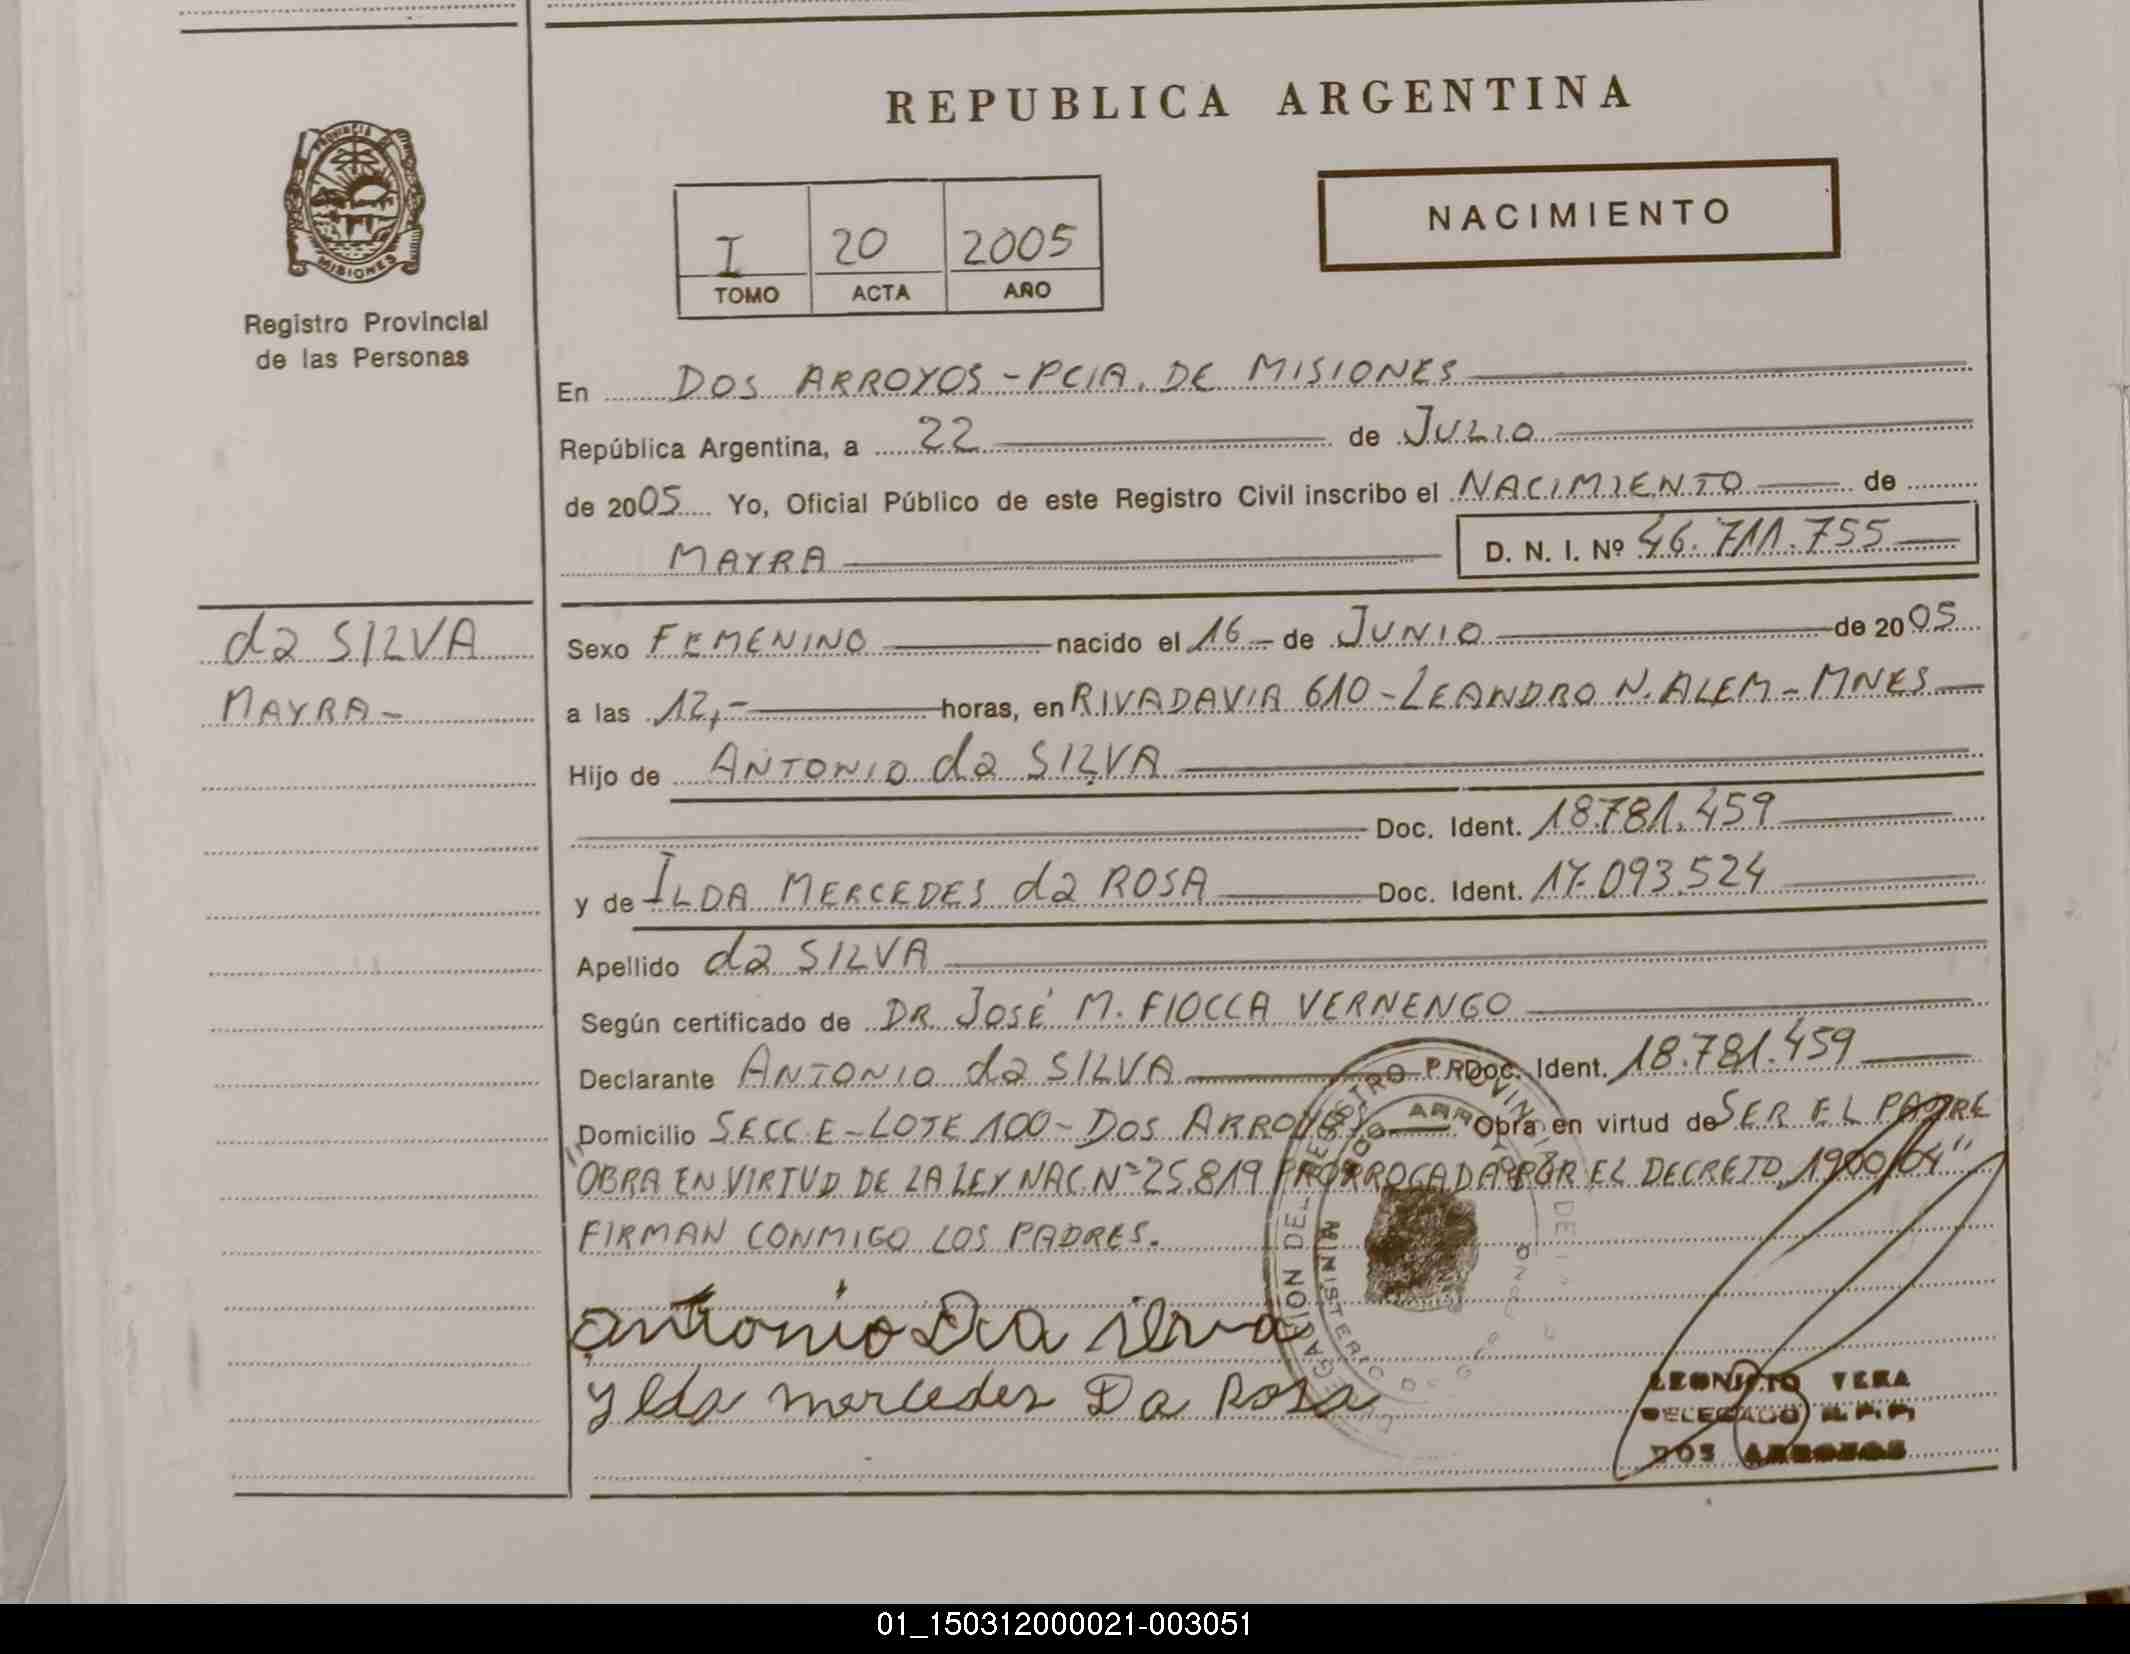 REPUBLICA ARGENTINA
PROVINCIA DE
MISIONES
Registro Provincial
de las Personas
NACIMIENTO
I 20 2005
TOMO ACTA AÑO
En DOS ARROYOS - PCIA. DE MISIONES
República Argentina, a 22 de JULIO
de 2005 Yo, Oficial Público de este Registro Civil inscribo el NACIMIENTO de
MAYRA D. N. I. Nº 46.711.755
da SILVA
MAYRA-
Sexo FEMENINO nacido el 16 de JUNIO de 2005
a las 12,- horas, en RIVADAVIA 610 - LEANDRO N. ALEM - MNES
Hijo de ANTONIO da SILVA
Doc. Ident. 18.781.459
y de ILDA MERCEDES da ROSA Doc. Ident. 17.093.524
Apellido da SILVA
Según certificado de DR JOSÉ M. FIOCCA VERNENGO
Declarante ANTONIO da SILVA Doc. Ident. 18.781.459
Domicilio SECC. E - LOTE 100 - DOS ARROYOS Obra en virtud de SER EL PADRE
"OBRA EN VIRTUD DE LA LEY NAC. Nº 25.819 PRORROGADA POR EL DECRETO 1900/04"
FIRMAN CONMIGO LOS PADRES.
antonio Da silva
ylda mercedes Da Rosa
LEONICIO VERA
DELEGADO R. P. P.
DOS ARROYOS
01_150312000021-003051